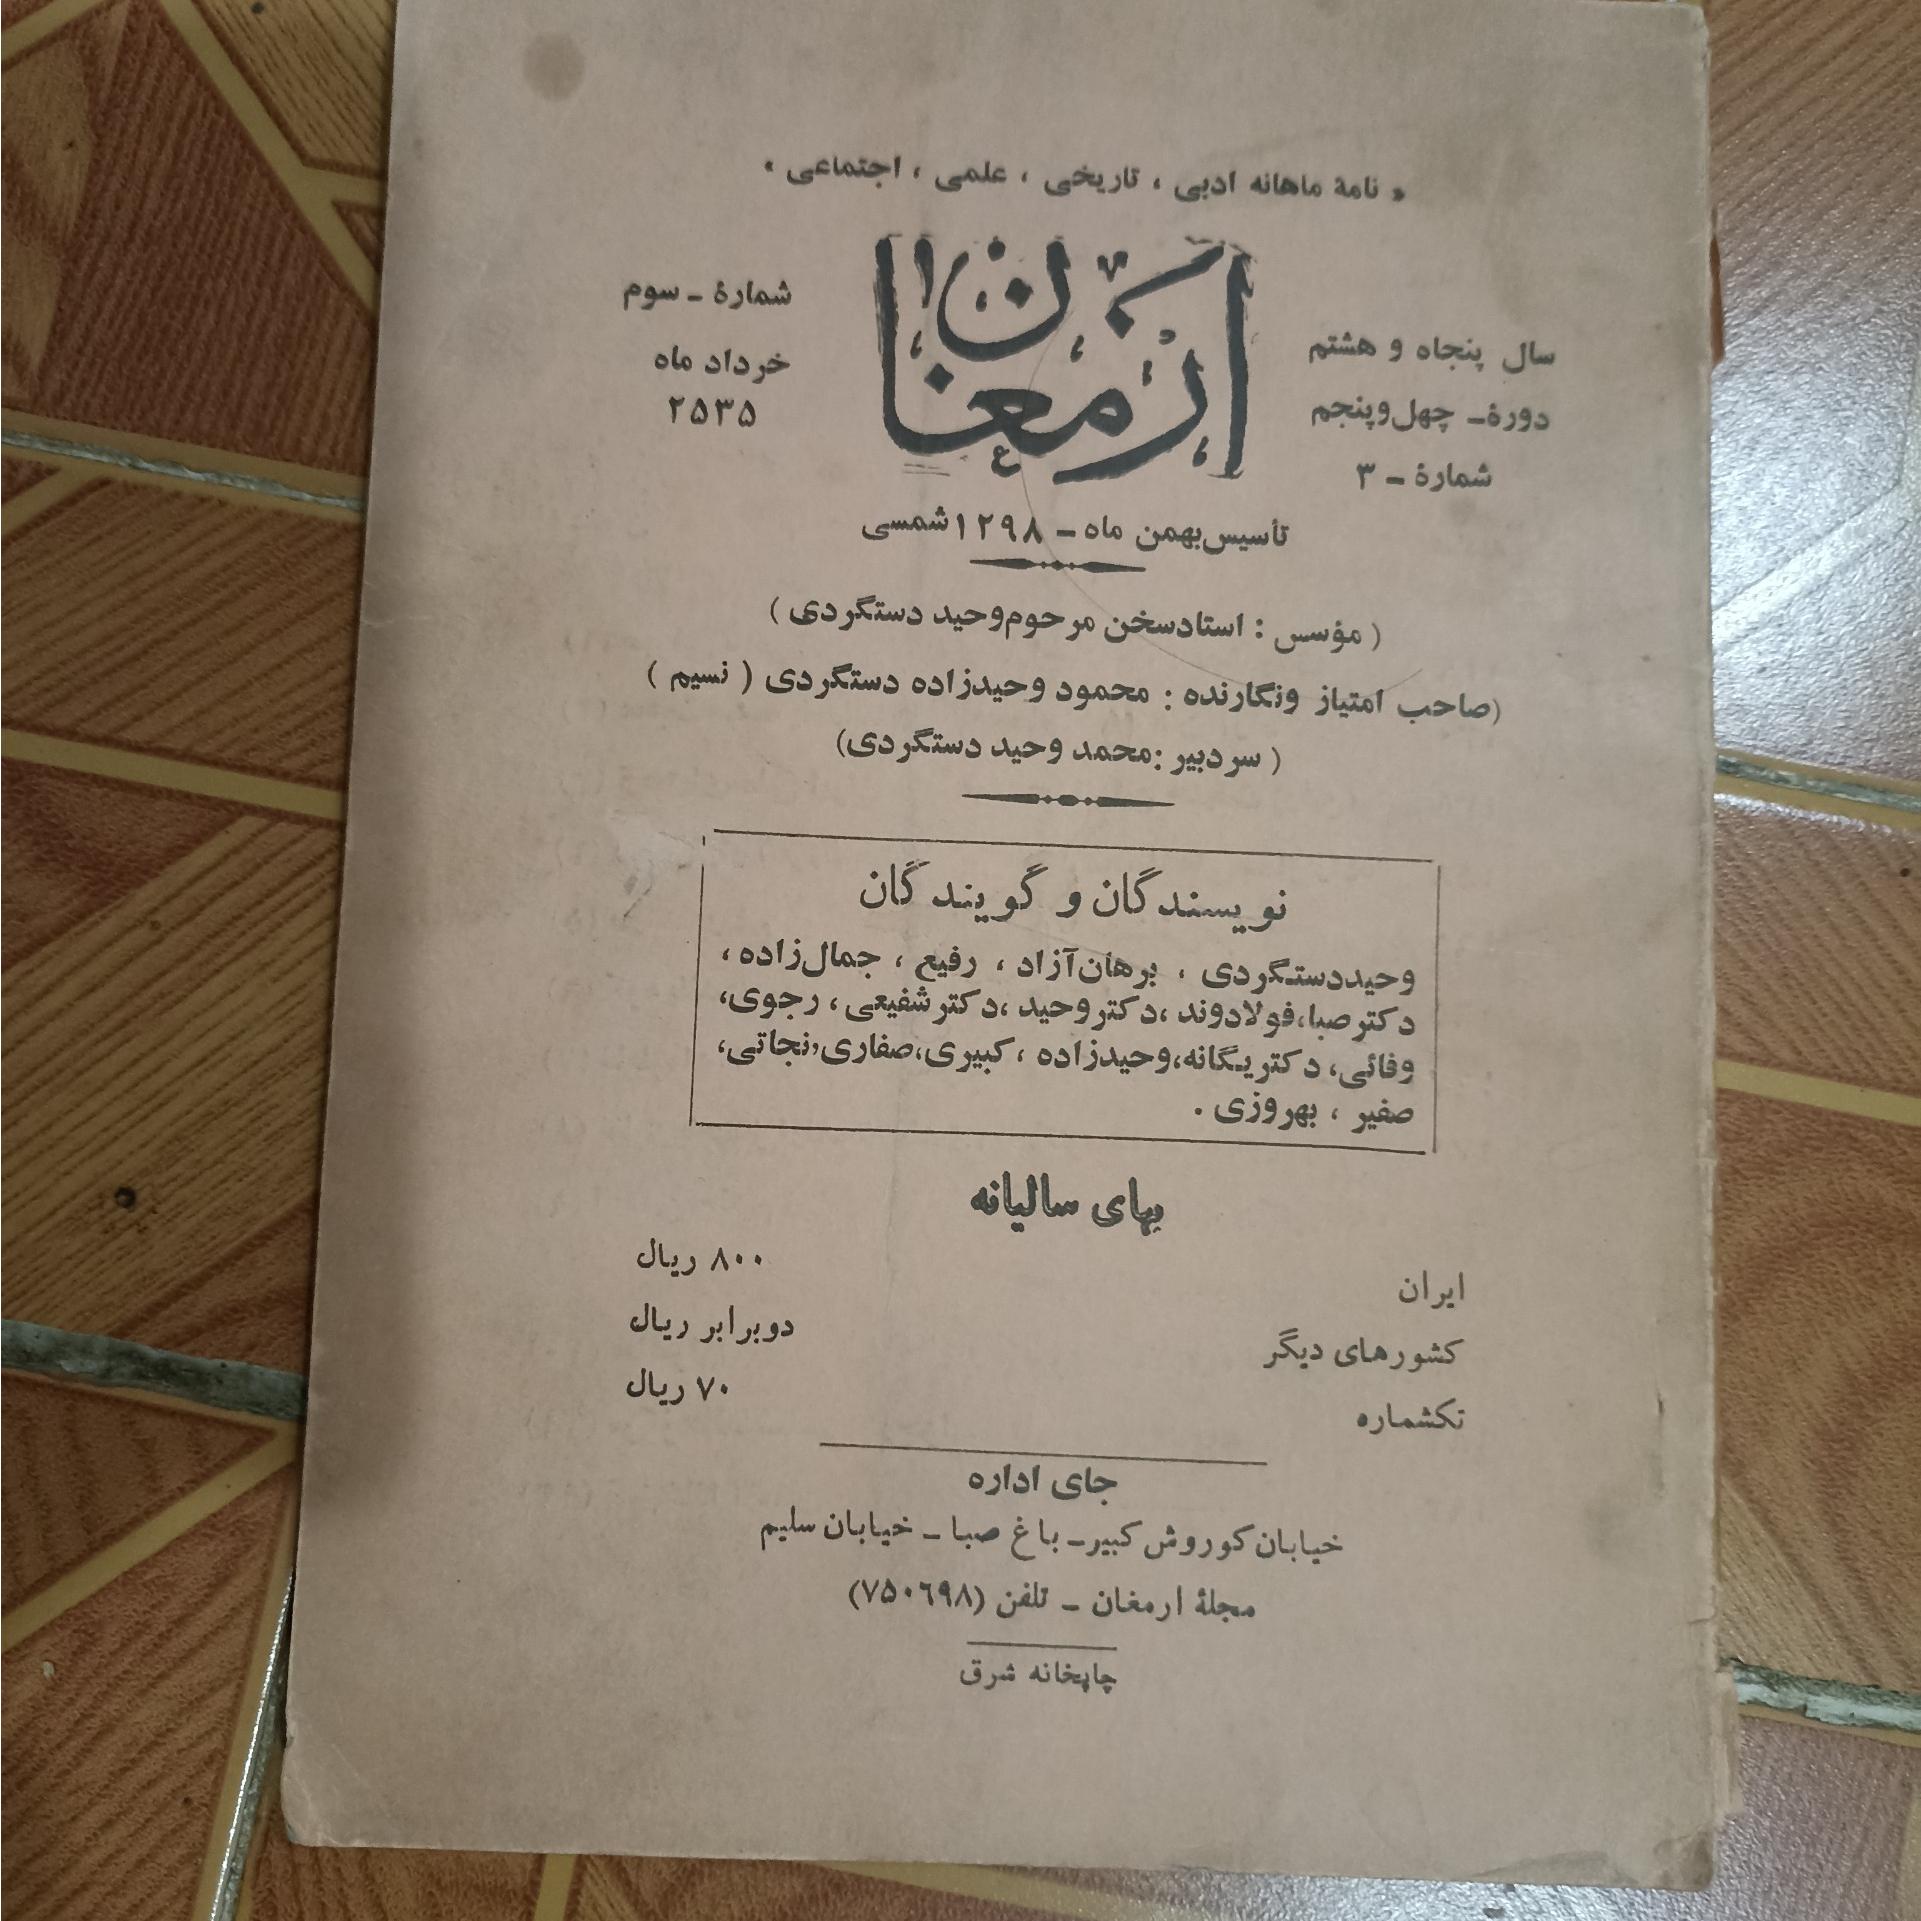 « نامهٔ ماهانه ادبی ، تاریخی ، علمی ، اجتماعی »
ارمغان
سال پنجاه و هشتم
دورهٔ - چهل‌وپنجم
شمارهٔ - ۳
شمارهٔ - سوم
خرداد ماه
۲۵۳۵
تأسیس بهمن ماه - ۱۲۹۸ شمسی
( مؤسس : استادسخن مرحوم‌وحید دستگردی )
(صاحب امتیاز ونگارنده : محمود وحیدزاده دستگردی ( نسیم )
( سردبیر : محمد وحید دستگردی)
نویسندگان و گویندگان
وحیددستگردی ، برهان‌آزاد ، رفیع ، جمال‌زاده ،
دکترصبا،فولادوند ،دکتروحید ،دکترشفیعی ، رجوی،
وفائی، دکتریگانه،وحیدزاده ، کبیری،صفاری،نجاتی،
صفیر ، بهروزی .
بهای سالیانه
ایران ۸۰۰ ریال
کشورهای دیگر دوبرابر ریال
تکشماره ۷۰ ریال
جای اداره
خیابان کوروش کبیر- باغ صبا - خیابان سلیم
مجلهٔ ارمغان - تلفن (۷۵۰۶۹۸)
چاپخانه شرق